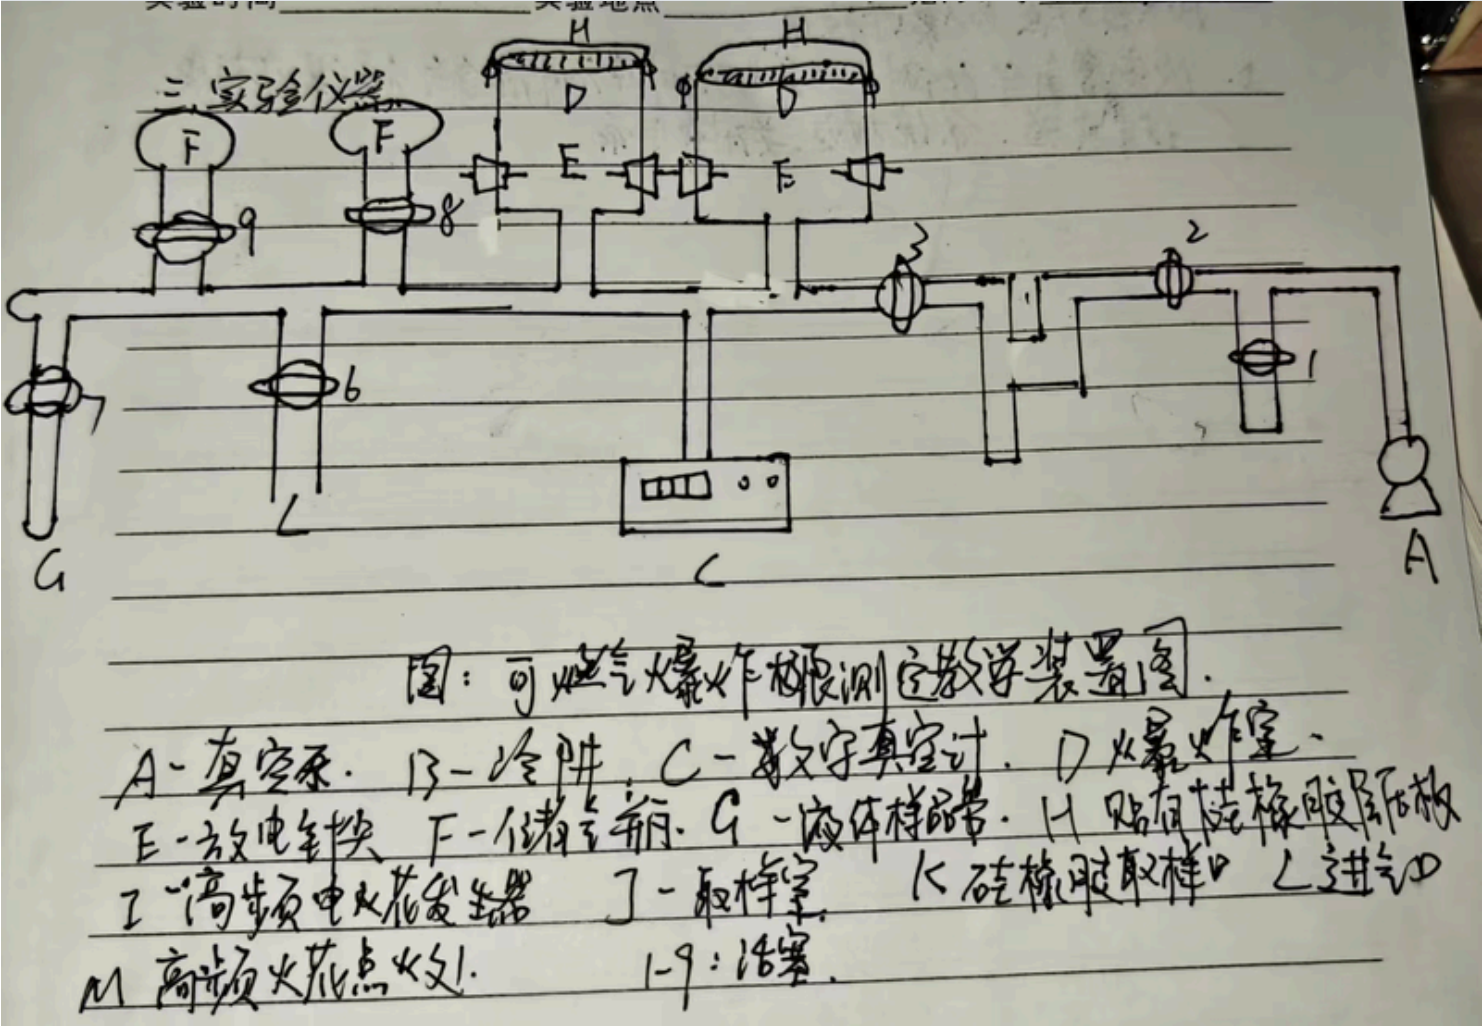 实验时间 实验地点
三、实验仪器
H H
D D
F F
E E
9 8
3 2
6 1
7
L
G C A
图：可燃气爆炸极限测定教学装置图.
A-真空泵. B-冷阱. C-数字真空计. D 爆炸室.
E-放电针尖 F-储气瓶. G-液体样品管. H 贴有硅橡胶层压板
I 高频电火花发生器 J-取样室. K 硅橡胶取样口 L 进气口
M 高频火花点火仪. 1-9：活塞.